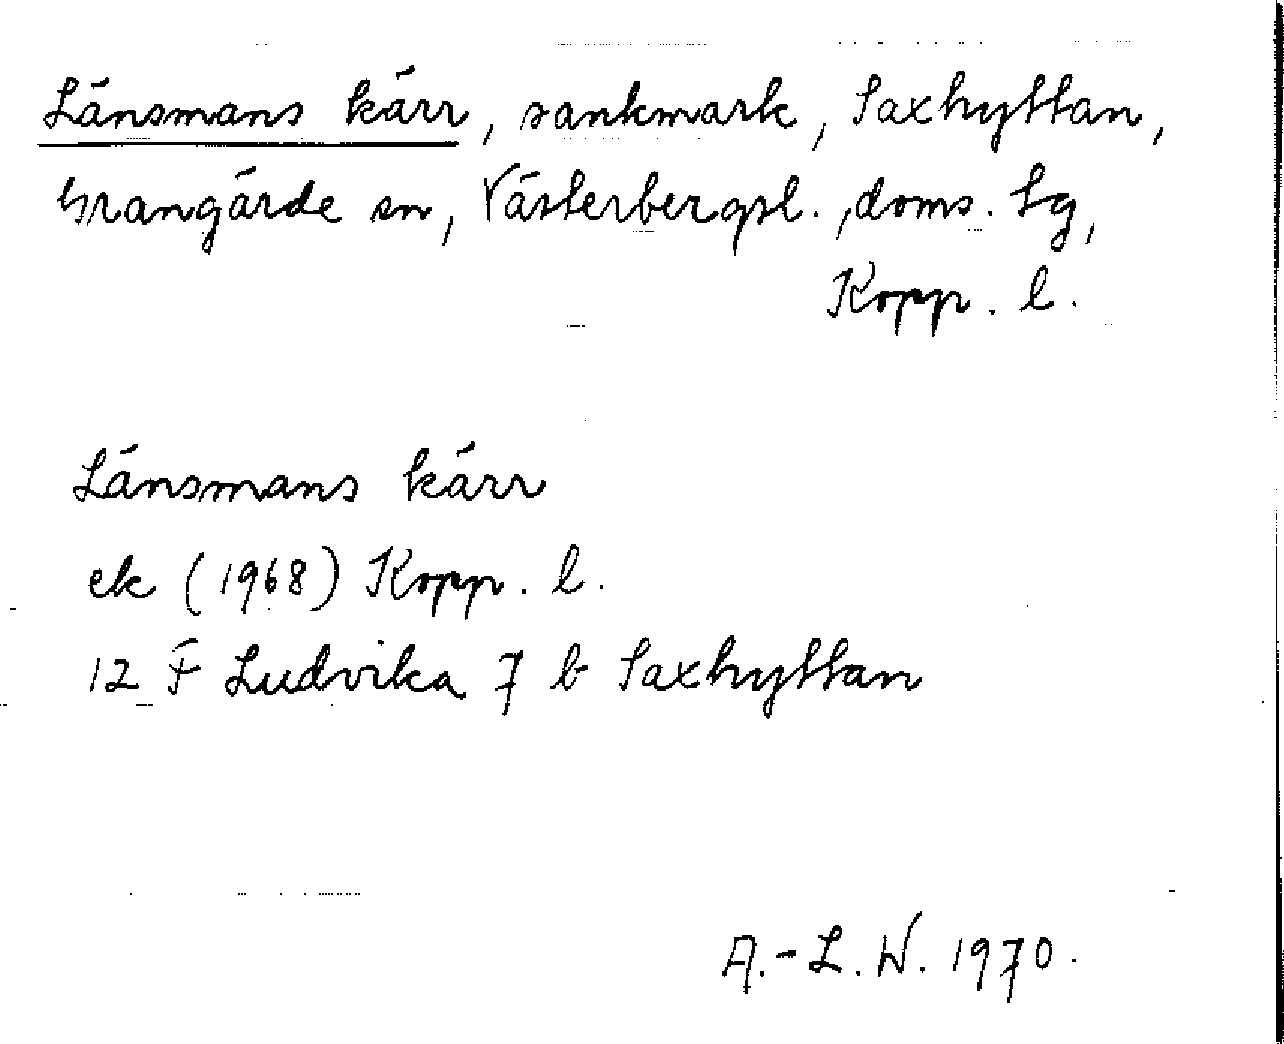 Länsmans kärr, sankmark, Saxhyttan,
Grangärde sn, Västerbergsl. ,doms. Lg,
Kopp. l.
Länsmans kärr
ek (1968) Kopp. l.
12 F Ludvika 7 b Saxhyttan
A.-L. W. 1970.